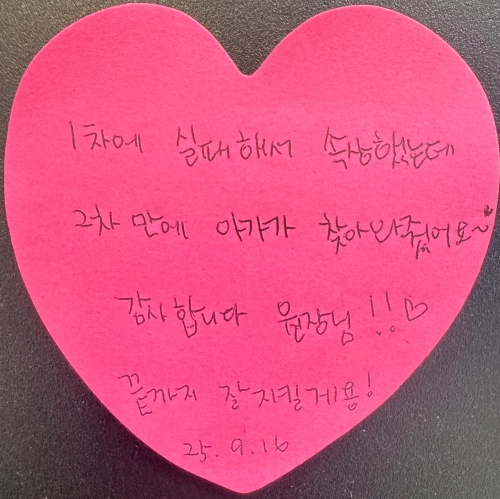 1차에 실패해서 속상했는데
2차 만에 아가가 찾아와줬어요~♥
감사합니다 원장님!!♡
끝까지 잘 지킬게용!
25.9.16